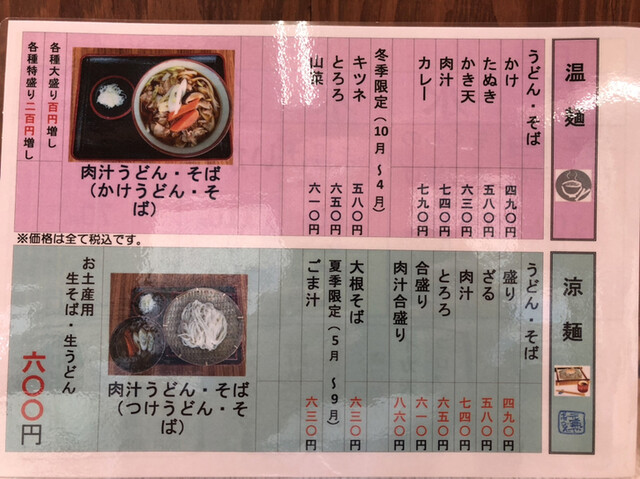 温麺
うどん・そば
かけ 四九〇円
たぬき 五八〇円
かき天 六三〇円
肉汁 七四〇円
カレー 七九〇円
冬季限定(10月～4月)
キツネ 五八〇円
とろろ 六五〇円
山菜 六一〇円
肉汁うどん・そば
(かけうどん・そ
ば)
各種大盛り百円増し
各種特盛り二百円増し
※価格は全て税込です。
涼麺
うどん・そば
盛り 四九〇円
ざる 五八〇円
肉汁 七四〇円
とろろ 六五〇円
合盛り 六一〇円
肉汁合盛り 八六〇円
大根そば 六三〇円
夏季限定(5月～9月)
ごま汁 六三〇円
肉汁うどん・そば
(つけうどん・そ
ば)
お土産用
生そば・生うどん
六〇〇円